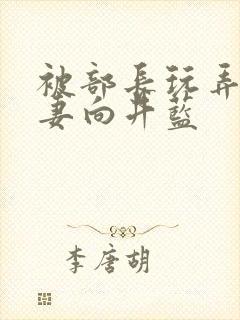 被部长玩弄
妻向井蓝
李唐胡